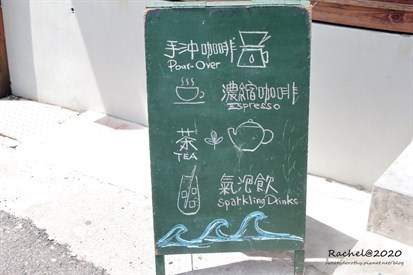 手沖咖啡
Pour-Over
濃縮咖啡
Espresso
茶
TEA
氣泡飲
Sparkling Drinks
Rachel@2020